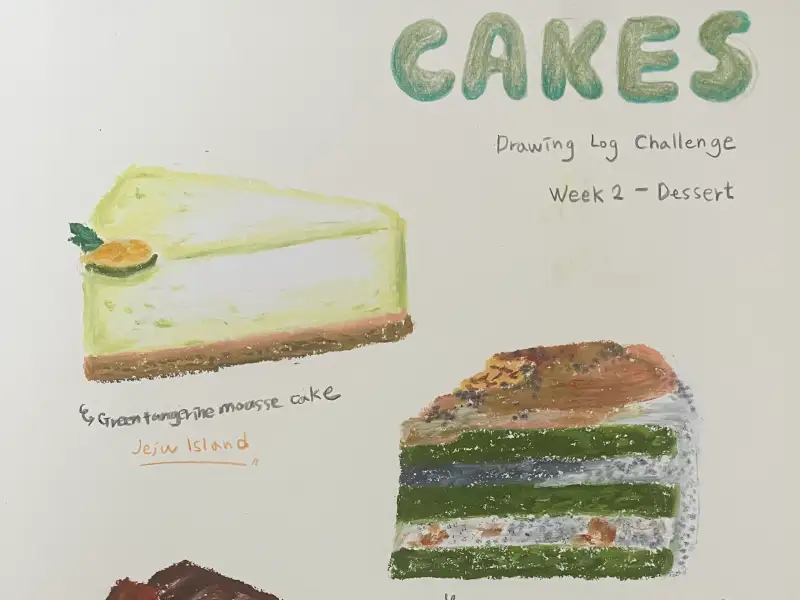 CAKES
Drawing Log Challenge
Week 2 - Dessert
Green tangerine mousse cake
Jeju Island